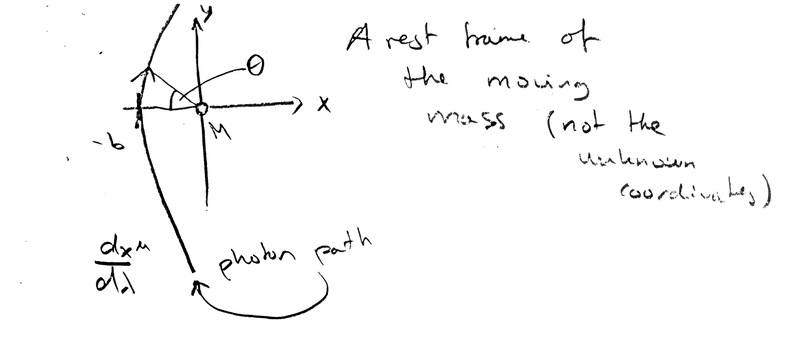 y
A rest frame of
the moving
mass (not the
unknown
coordinates)
θ
x
M
-b
dx^μ
dλ
photon path